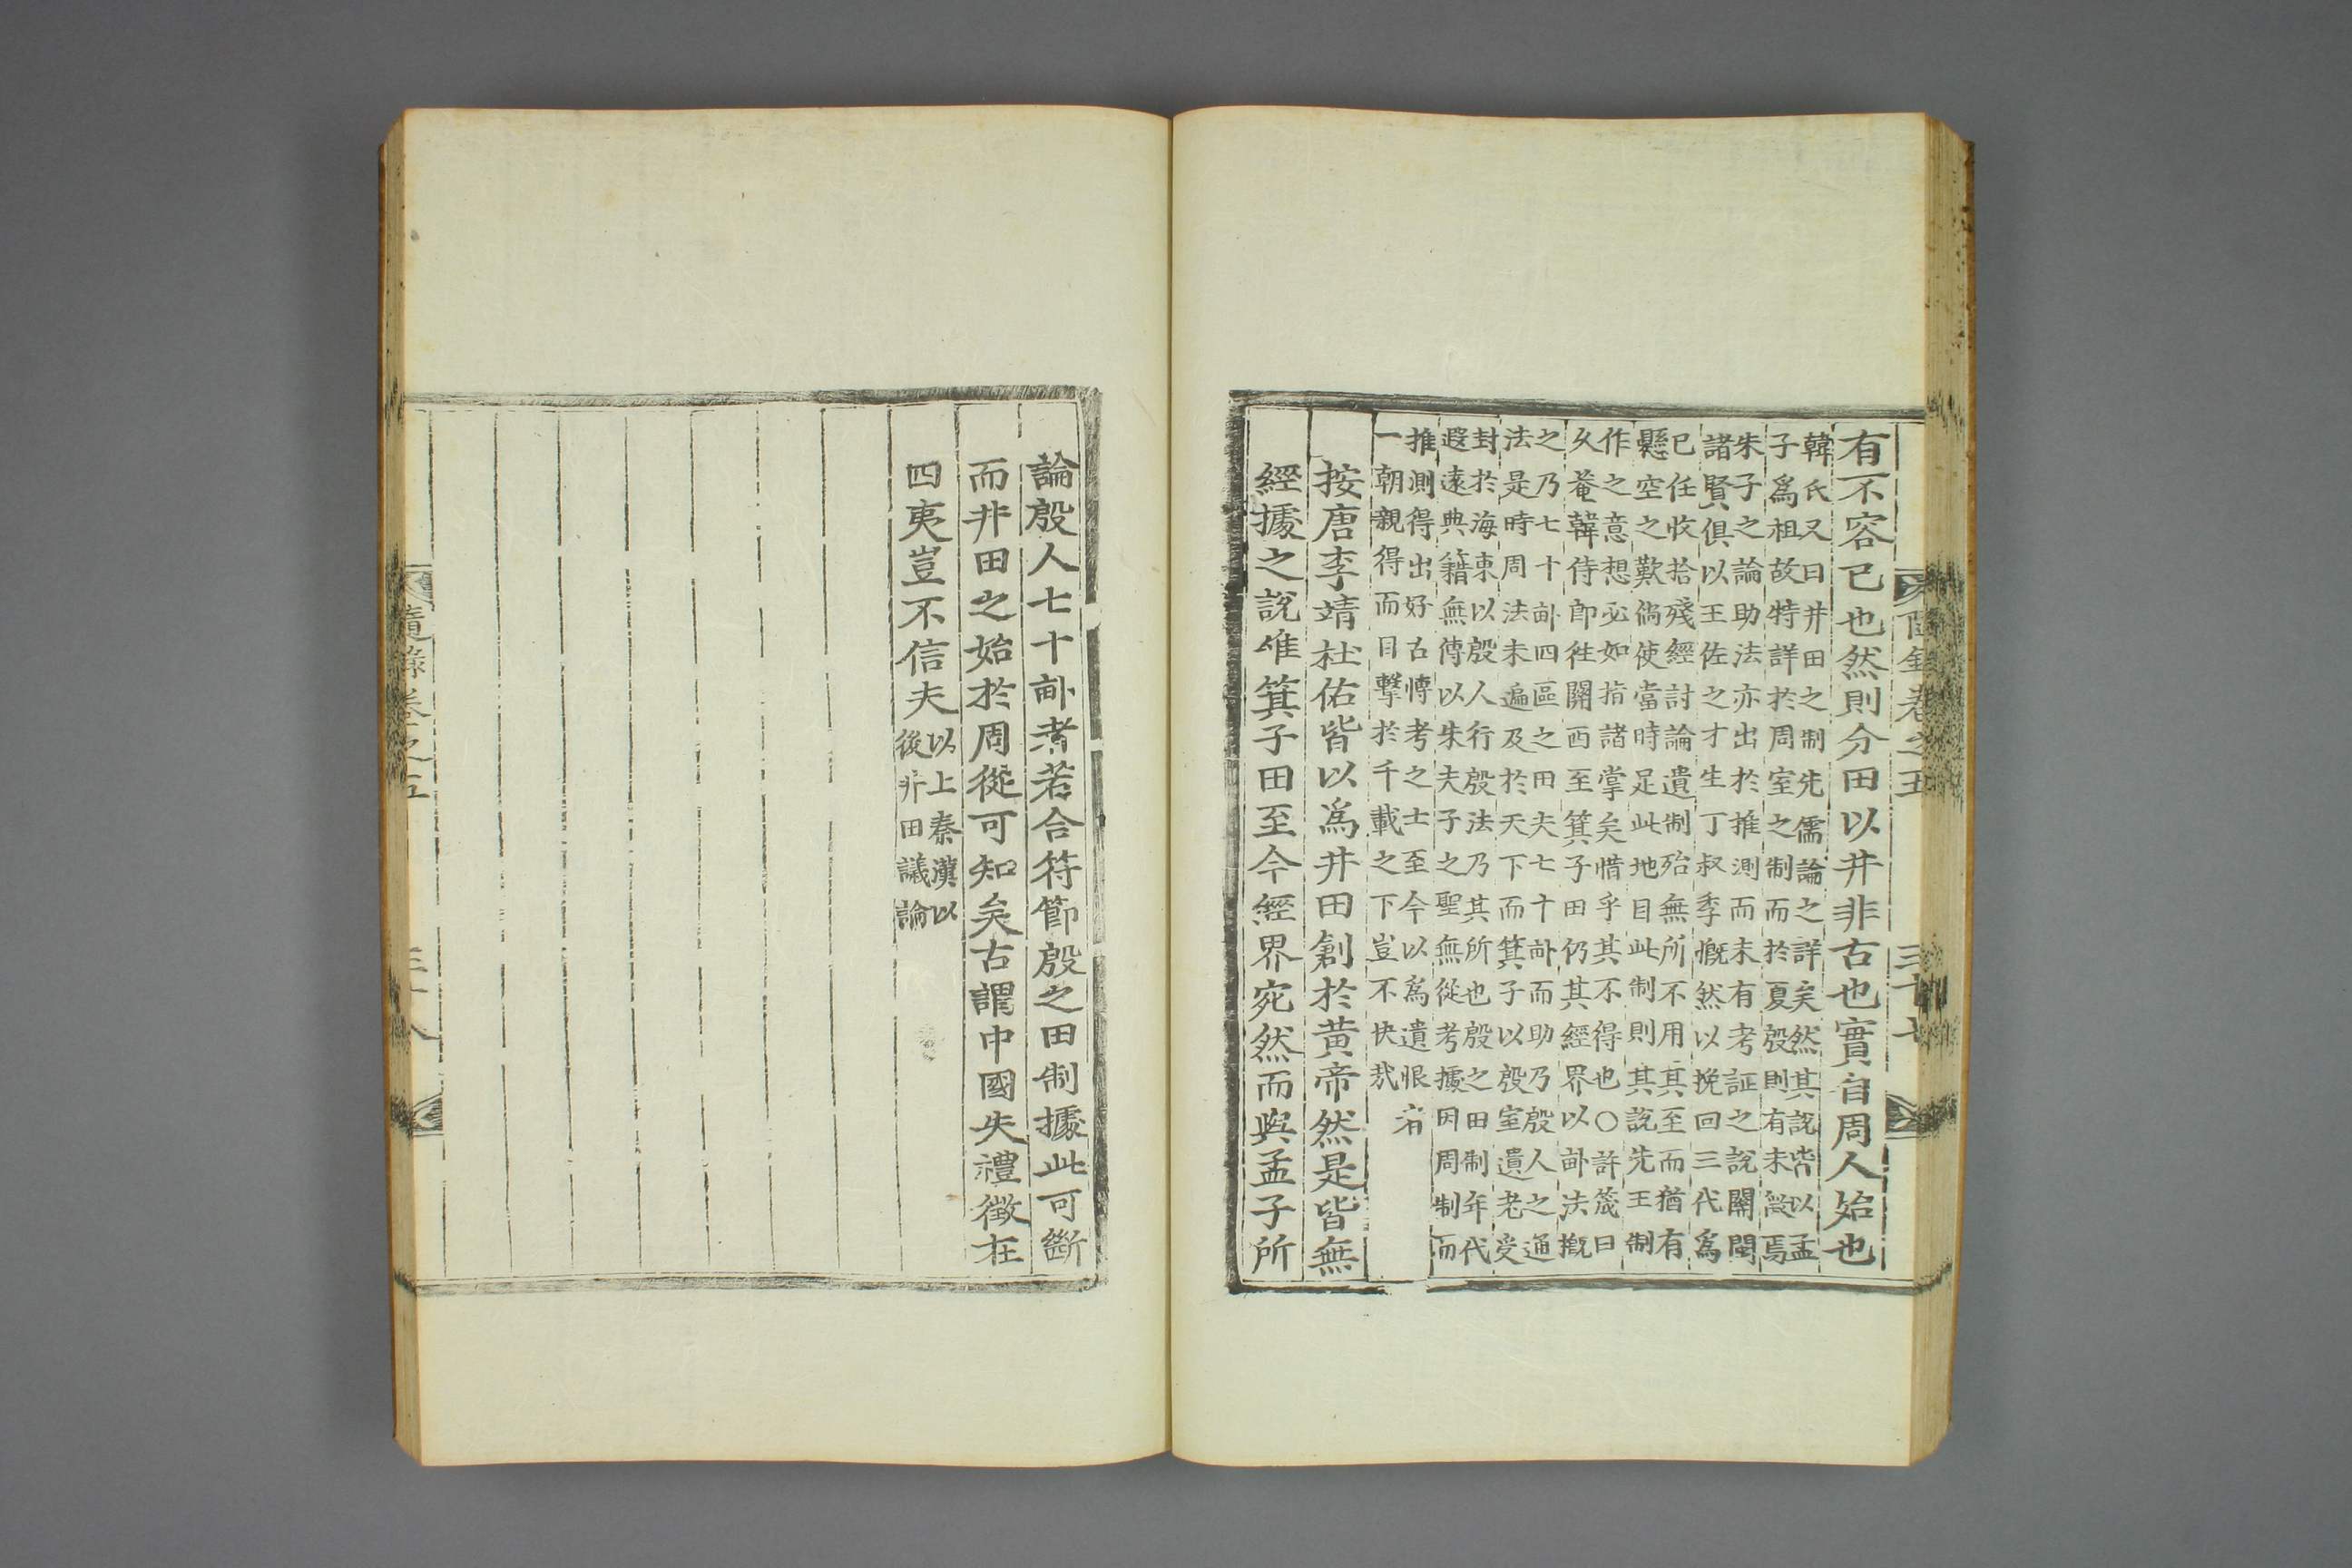 隨錄卷之五
三十七
有不容已也然則分田以井非古也實自周人始也
韓氏又曰井田之制先儒論之詳矣然其說皆以孟
子爲祖故特詳於周室之制而於夏殷則有未徵焉
朱子之論助法亦出於推測而未有考証之說關閩
諸賢俱以王佐之才生丁叔季慨然以挽回三代爲
已任收拾殘經討論遺制殆無所不用其至而猶有
懸空之歎倘使當時足此地目此制則其說先王制
作之意想必如指諸掌矣惜乎其不得也○許筬曰
久菴韓侍郎往關西至箕子田仍其經界以畝法槪
之乃七十畝四區之田夫七十畝而助乃殷人之通
法是時周法未遍及於天下而箕子以殷室遺老受
封於海東以殷人行殷法乃其所也殷之田制年代
遐遠典籍無傳以朱夫子之聖無從考據因周制而
推測得出好古博考之士至今以爲遺恨者
一朝親得而目擊於千載之下豈不快㢤
按唐李靖杜佑皆以爲井田創於黃帝然是皆無
經據之說唯箕子田至今經界宛然而與孟子所
論殷人七十畝者若合符節殷之田制據此可斷
而井田之始於周從可知矣古謂中國失禮徵在
四夷豈不信夫
以上秦漢以
後井田議論
隨錄卷之五
三十八